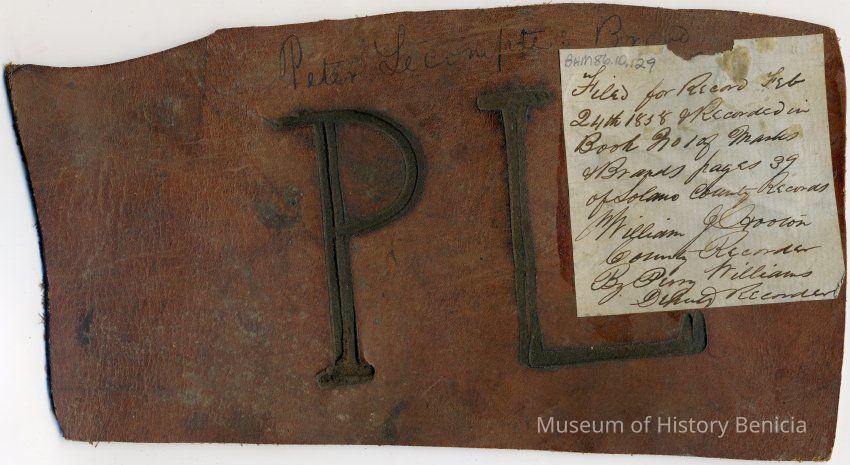 Peter Lecompte Brand
PL
BHM 86.10.129
Filed for Record Feb
24th 1858 & Recorded in
Book No 1 of Marks
& Brands pages 39
of Solano County Records
William J Wooton
County Recorder
By Perry Williams
Deputy Recorder
Museum of History Benicia